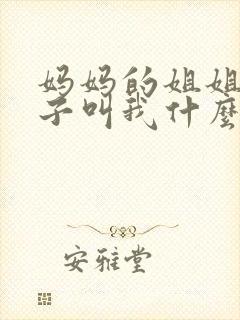 妈妈的姐姐
子叫我什麼
安雅堂